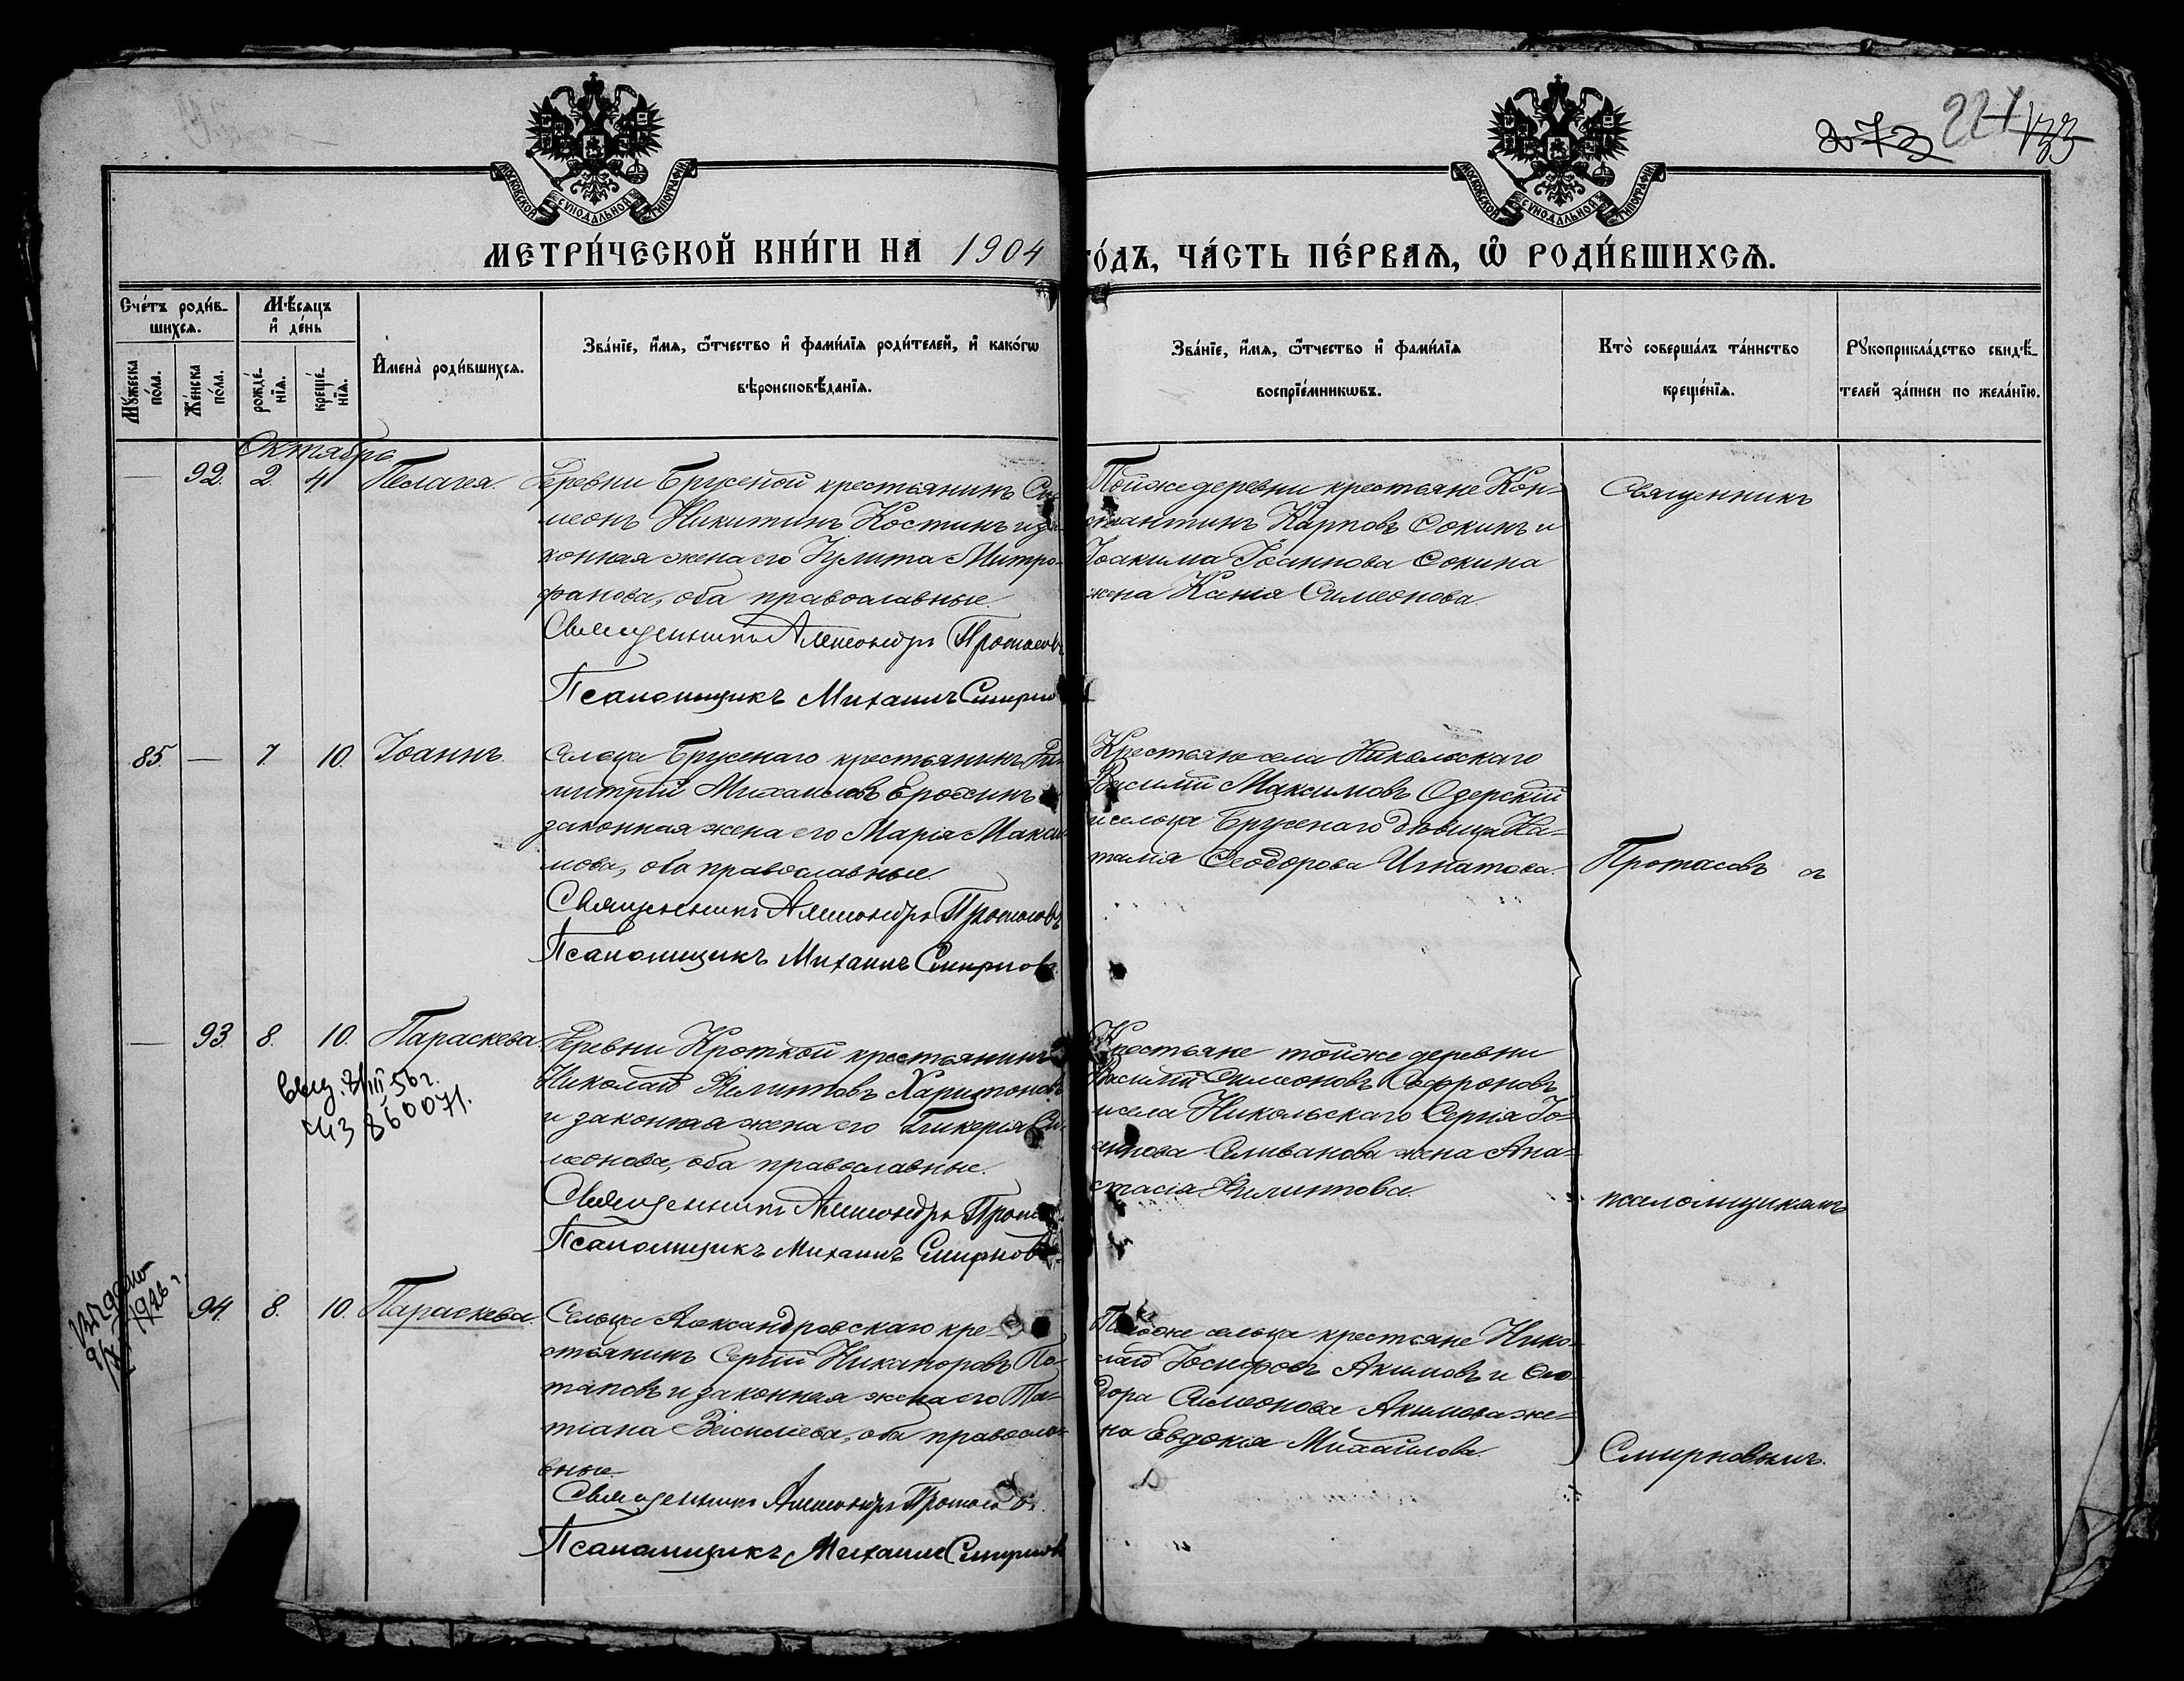 273 221 133
МОСКОВСКОЙ СѴНОДАЛЬНОЙ ТИПОГРАФІИ
МОСКОВСКОЙ СѴНОДАЛЬНОЙ ТИПОГРАФІИ
МЕТРИ́ЧЕСКОЙ КНИ́ГИ НА 1904
ГО́ДЪ, ЧА́СТЬ ПЕ́РВАѦ, Ѽ РОДИ́ВШИХСѦ.
Счéтъ роди́в-
шихсѧ.
Мꙋ́жеска
по́ла.
Же́нска
по́ла.
Мѣ́сѧцъ
и҆ де́нь
рожде́-
нїѧ.
креще́-
нїѧ.
И҆мена̀ роди́вшихсѧ.
Зва́нїе, и҆́мѧ, ѻ҆́тчество и҆ фами́лїѧ роди́телей, и҆ како́гѡ
вѣроисповѣ́данїѧ.
Зва́нїе, и҆́мѧ, ѻ҆́тчество и҆ фами́лїѧ
воспрїе́мникѡвъ.
Кто̀ соверша́лъ та́инство
креще́нїѧ.
Рꙋкоприкла́дство свидѣ́-
телей за́писи по жела́нїю.
Октябрь
— 92. 2. 4. Пелагея.
Деревни Брусеной крестьянинъ Си-
меонъ Никитинъ Костинъ и за-
конная жена его Іулита Митро-
фанова, оба православные.
Священникъ Александръ Протасовъ
Псаломщикъ Михаилъ Смирнов
Тойже деревни крестьяне Кон-
стантинъ Карповъ Сокинъ и
Іоакима Іоаннова Сокина
жена Ксенія Симеонова.
Священникъ
85. — 7. 10. Іоаннъ.
Сельца Брусенаго крестьянинъ Ди-
митрій Михаиловъ Ерохинъ и
законная жена его Марія Макси-
мова, оба православные.
Священникъ Александръ Протасовъ
Псаломщикъ Михаилъ Смирновъ
Крестьяне села Никольскаго
Василій Максимовъ Озерскій
и сельца Брусенаго дѣвица На-
талія Ѳеодорова Игнатова.
Протасовъ съ
— 93. 8. 10. Параскева.
Деревни Кроткой крестьянинъ
Николай Филипповъ Харитоновъ
и законная жена его Гликерія Си-
меонова, оба православные.
Священникъ Александръ Протас
Псаломщикъ Михаилъ Смирновъ
Крестьяне тойже деревни
Василій Симеоновъ Софроновъ
и села Никольскаго Сергія Іо-
аннова Селиванова жена Ана-
стасія Филиппова.
псаломщикомъ
выд. 7/III 56 г.
МЗ 860071.
выдано
9/IX 1926 г.
94. 8. 10. Параскева.
Сельца Александровскаго кре-
стьянинъ Сергій Никаноровъ По-
таповъ и законная жена его Та-
тіана Васильева, оба правосла-
вные.
Священникъ Александръ Протасовъ.
Псаломщикъ Михаилъ Смирновъ
Тогоже сельца крестьяне Нико-
лай Іосифовъ Акимовъ и Ѳео-
дора Симеонова Акимова же-
на Евдокія Михайлова.
Смирновымъ.